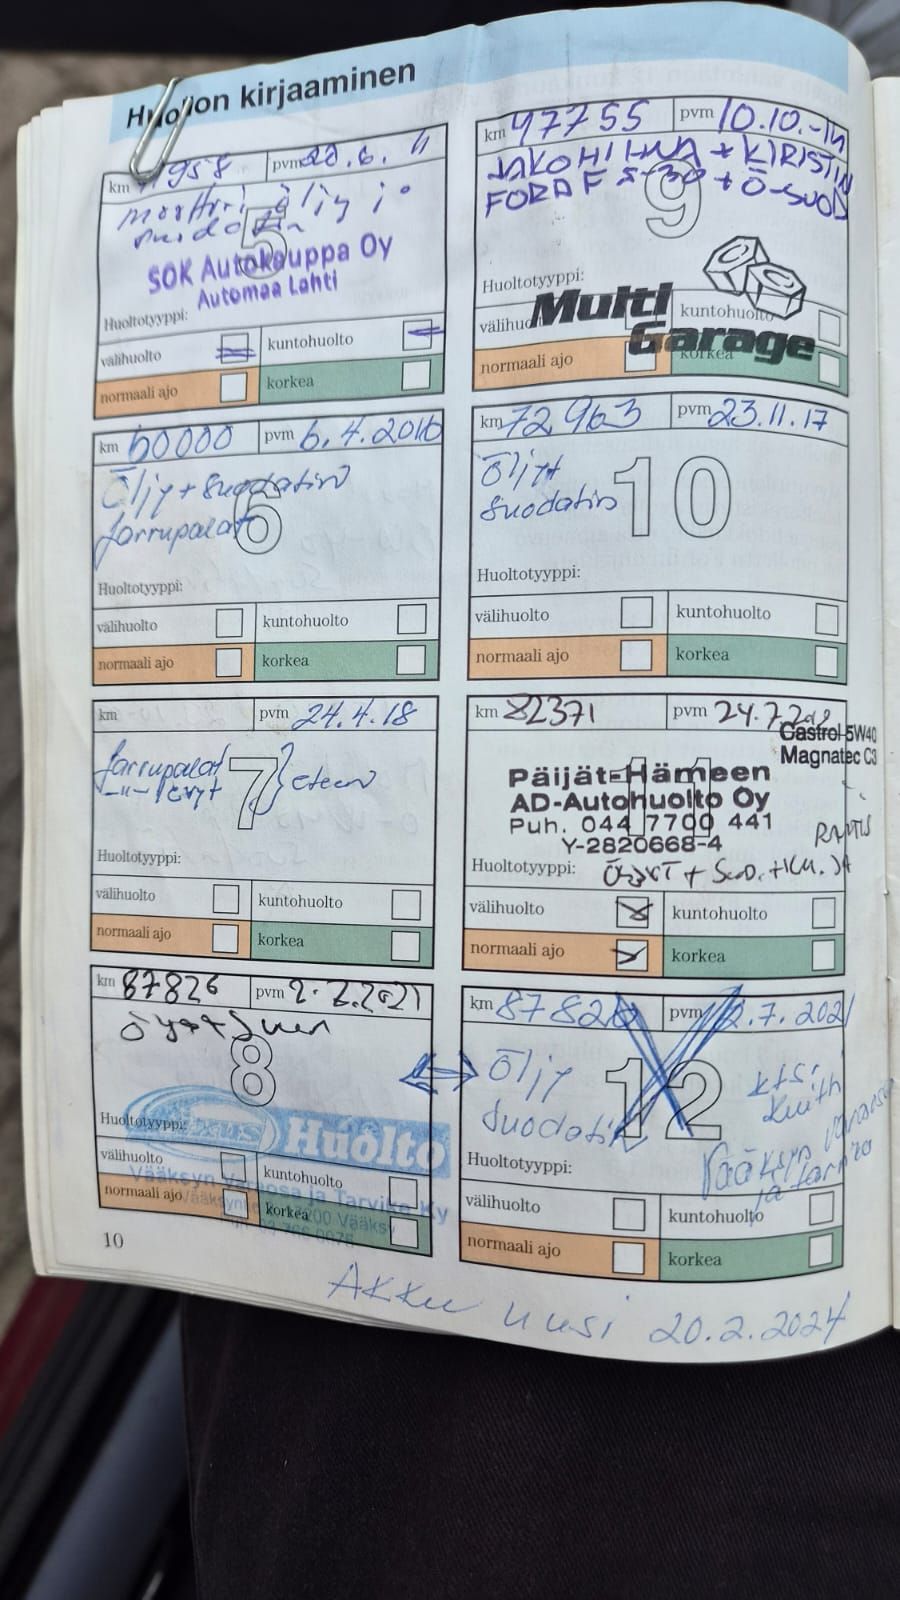 Huollon kirjaaminen
km 958 pvm 28.6. 11
moottori öljy ja
suodatin
5
SOK Autokauppa Oy
Automaa Lahti
Huoltotyyppi:
välihuolto kuntohuolto
normaali ajo korkea
km 60000 pvm 6.4.2016
Öljy + Suodatin
6
jarrupalat
Huoltotyyppi:
välihuolto kuntohuolto
normaali ajo korkea
km pvm 24.4.18
jarrupalat
7
-"- levyt } eteen
Huoltotyyppi:
välihuolto kuntohuolto
normaali ajo korkea
km 87826 pvm 2.7.2021
8
Huoltotyyppi:
Huolto
välihuolto kuntohuolto
Vääksyn Varaosa ja Tarvike Ky
normaali ajo korkea
10
km 47755 pvm 10.10.-14
JAKOHIHNA + KIRISTIN
FORD F 5-30 + Ö-SUOD
9
Huoltotyyppi:
Multi
Garage
välihuolto kuntohuolto
normaali ajo korkea
km 72963 pvm 23.11.17
Öljyt
suodatin
10
Huoltotyyppi:
välihuolto kuntohuolto
normaali ajo korkea
km 82371 pvm 24.7.20
Castrol 5W40
Magnatec C3
11
Päijät-Hämeen
AD-Autohuolto Oy
Puh. 044 7700 441
Y-2820668-4
Huoltotyyppi:
välihuolto kuntohuolto
normaali ajo korkea
km 87826 pvm 12.7.2021
Öljy
suodatin
12
kts.
Vääksyn varaosa
ja tarvike
Huoltotyyppi:
välihuolto kuntohuolto
normaali ajo korkea
Akku uusi 20.2.2024